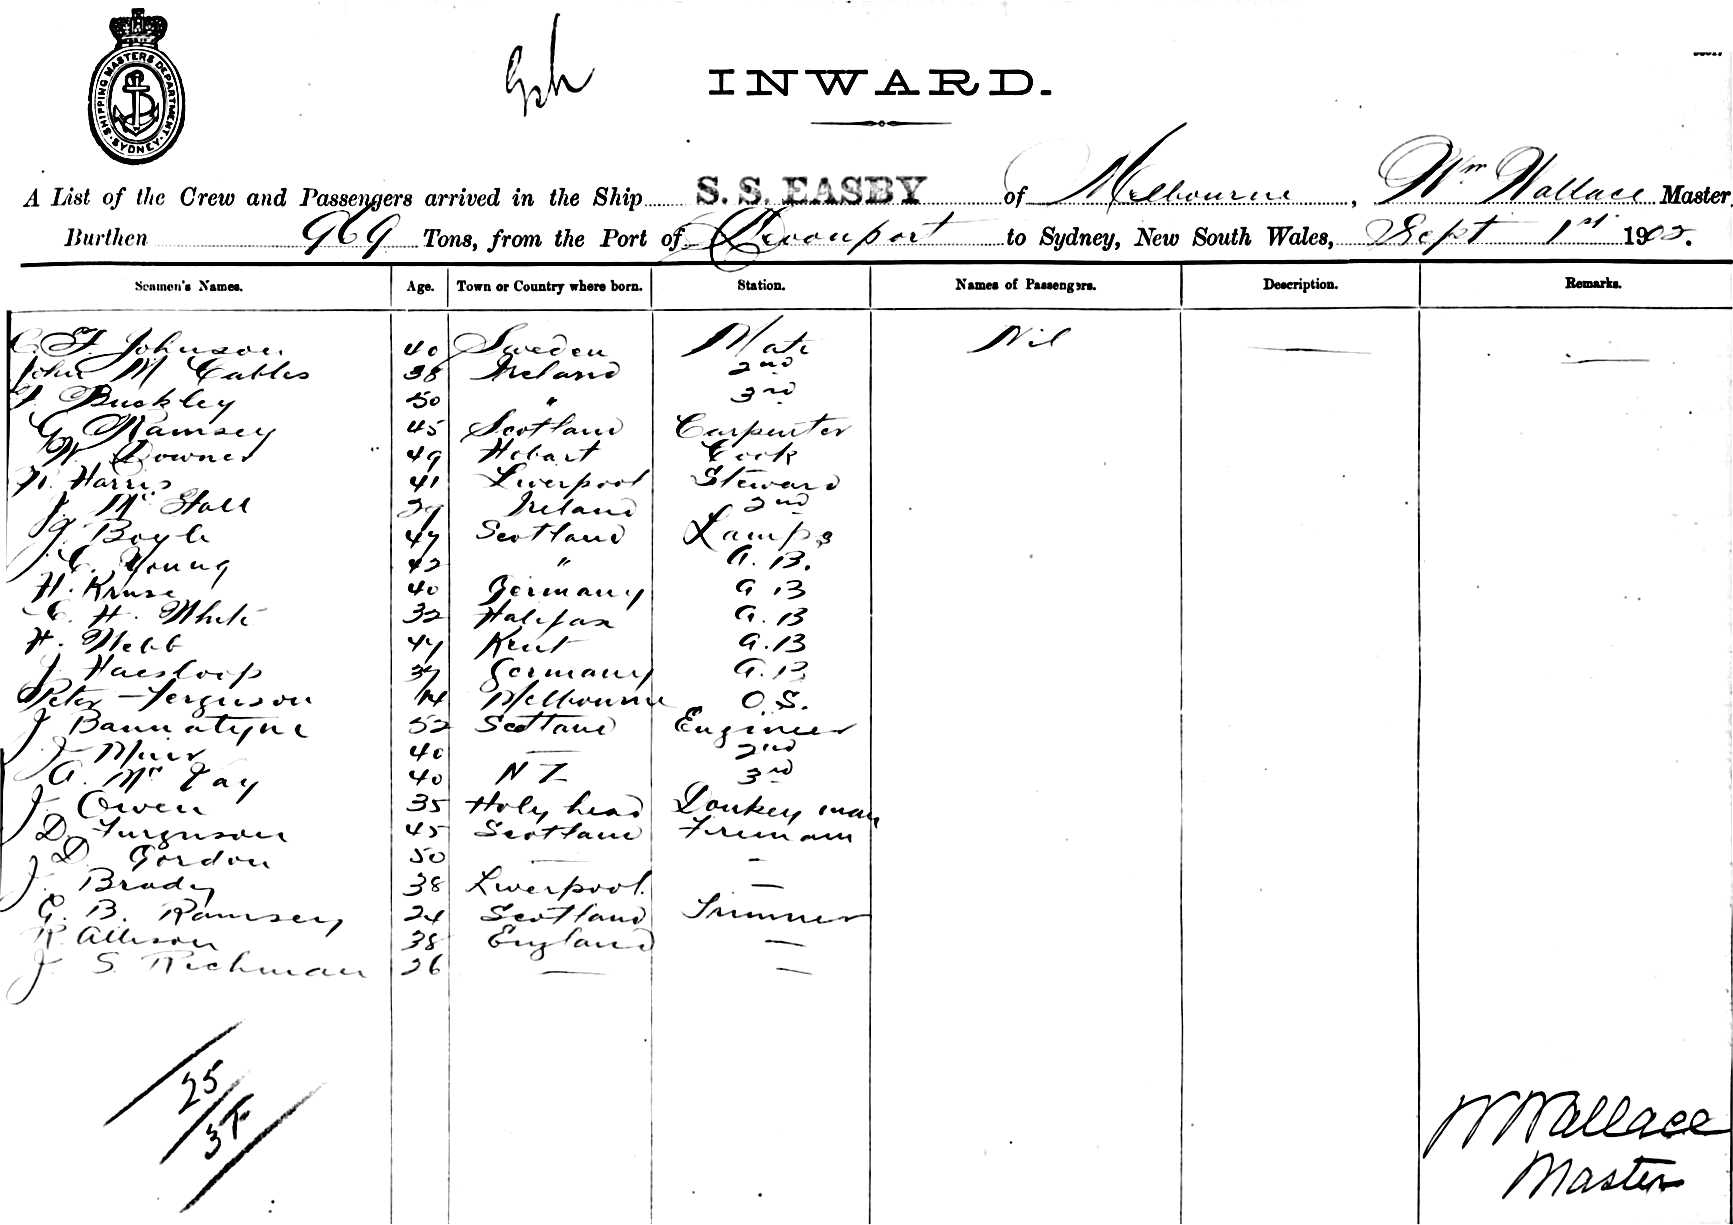 SHIPPING MASTERS DEPARTMENT. SYDNEY
INWARD.
A List of the Crew and Passengers arrived in the Ship S. S. EASBY of Melbourne, Wm Wallace Master,
Burthen 969 Tons, from the Port of Devonport to Sydney, New South Wales, Sept 1st 1902.
Seamen's Names. Age. Town or Country where born. Station. Names of Passengers. Description. Remarks.
C. F. Johnson 40 Sweden Mate Nil
John M Cables 38 Ireland 2nd
F. Buckley 50 " 3rd
G Ramsey 45 Scotland Carpenter
W. Downer 49 Hobart Cook
N. Harris 41 Liverpool Steward
J. Mc Stall 29 Ireland 2nd
J. Boyle 47 Scotland Lamps
C. Young 42 " A. B.
H. Kruse 40 Germany A B
C. H. White 32 Halifax A. B
H. Webb 47 Kent A. B
J. Haesloop 37 Germany A. B.
Peter Ferguson Melbourne O. S.
J Bannatyne 52 Scotland Engineer
J Muir 40 — 2nd
A. Mc Fay 40 N Z 3rd
J. Owen 35 Holy head Donkey man
D. Furguson 45 Scotland Fireman
D. Gordon 50 — —
J. Brady 38 Liverpool. —
G. B. Ramsey 24 Scotland Trimmer
R Allison 38 England —
J. S. Richman 26 — —
25
W Wallace
Master